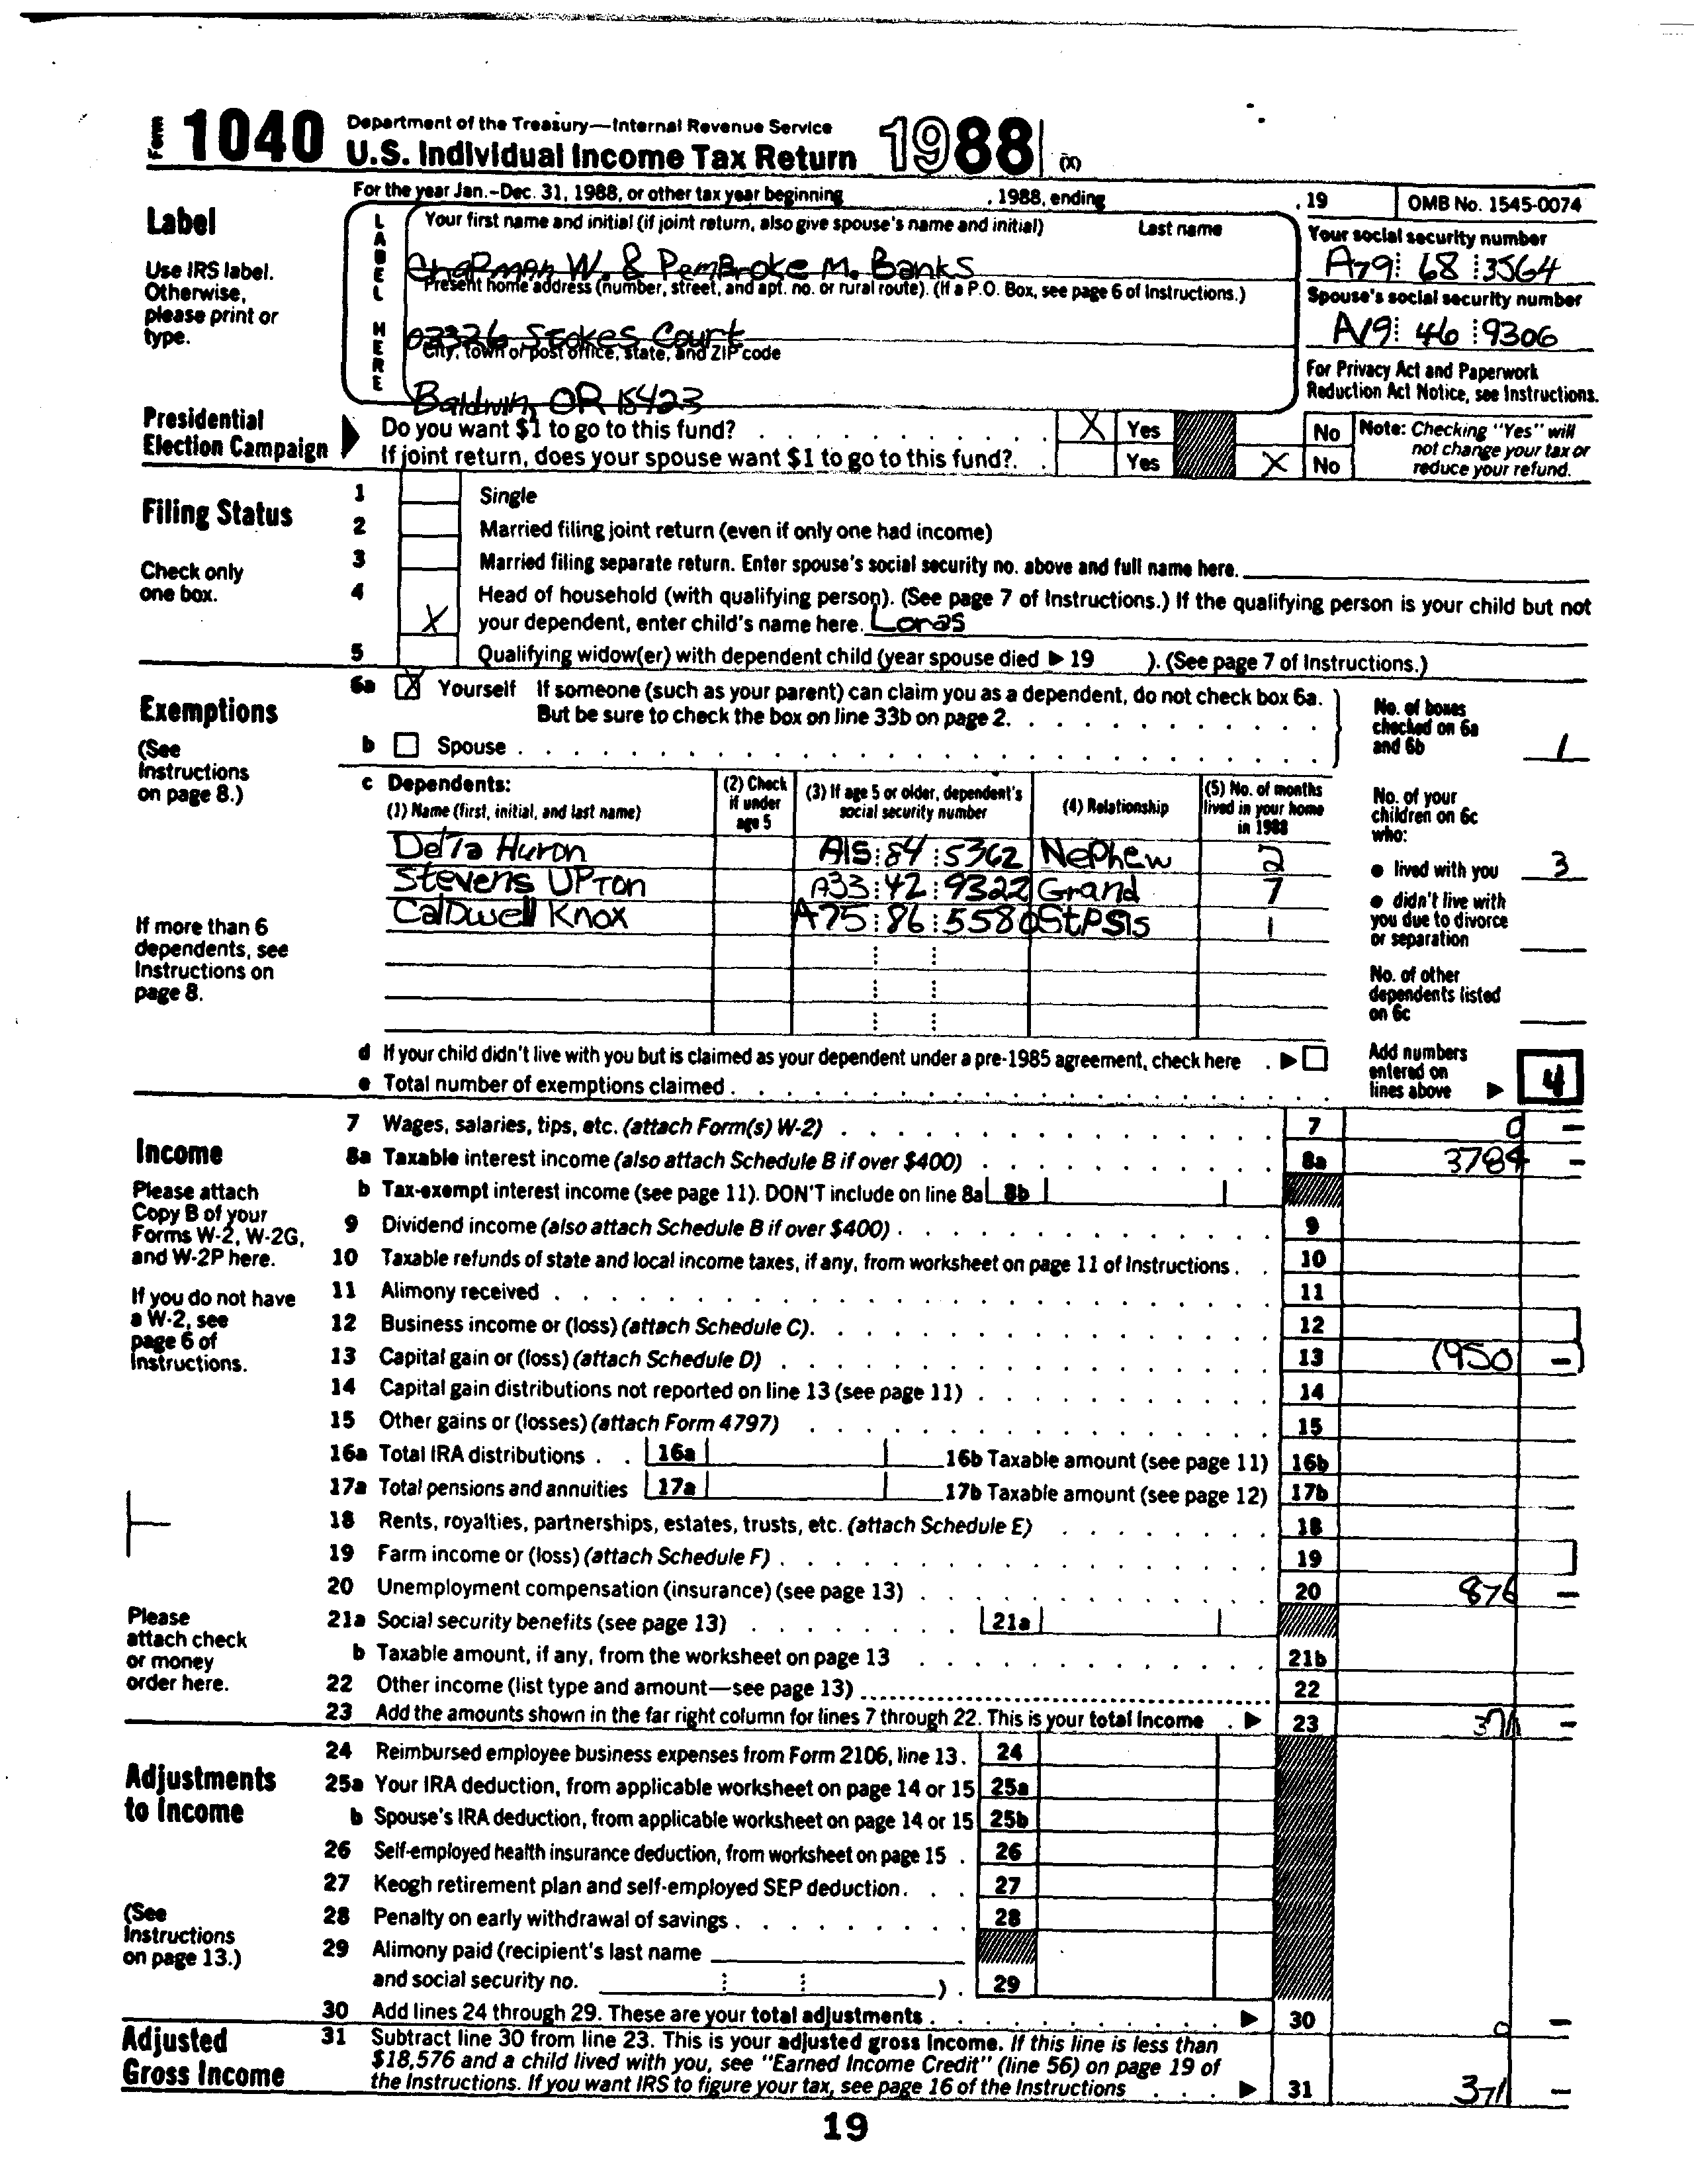 Form 1040 Department of the Treasury—Internal Revenue Service
U.S. Individual Income Tax Return 1988 (X)
For the year Jan.-Dec. 31, 1988, or other tax year beginning , 1988, ending , 19 OMB No. 1545-0074
Label
Use IRS label. Otherwise, please print or type.
LABEL HERE
Your first name and initial (if joint return, also give spouse's name and initial) Last name
Chapman W. & Pembroke M. Banks
Your social security number
A79 68 3564
Present home address (number, street, and apt. no. or rural route). (If a P.O. Box, see page 6 of Instructions.)
02326 Stokes Court
Spouse's social security number
A19 46 9306
City, town or post office, state, and ZIP code
Baldwin, OR 15423
For Privacy Act and Paperwork Reduction Act Notice, see Instructions.
Presidential Election Campaign
Do you want $1 to go to this fund? X Yes No
If joint return, does your spouse want $1 to go to this fund? Yes X No
Note: Checking "Yes" will not change your tax or reduce your refund.
Filing Status
Check only one box.
1 Single
2 Married filing joint return (even if only one had income)
3 Married filing separate return. Enter spouse's social security no. above and full name here.
4 X Head of household (with qualifying person). (See page 7 of Instructions.) If the qualifying person is your child but not
your dependent, enter child's name here. Loras
5 Qualifying widow(er) with dependent child (year spouse died ▶ 19 ). (See page 7 of Instructions.)
Exemptions
(See Instructions on page 8.)
6a X Yourself If someone (such as your parent) can claim you as a dependent, do not check box 6a.
But be sure to check the box on line 33b on page 2.
b Spouse
No. of boxes checked on 6a and 6b 1
c Dependents:
(1) Name (first, initial, and last name) (2) Check if under age 5 (3) If age 5 or older, dependent's social security number (4) Relationship (5) No. of months lived in your home in 1988
Delta Huron A15 84 5362 Nephew 2
Stevens Upton A33 42 9322 Grand 7
Caldwell Knox A75 86 5580 StPSis 1
If more than 6 dependents, see Instructions on page 8.
No. of your children on 6c who:
● lived with you 3
● didn't live with you due to divorce or separation
No. of other dependents listed on 6c
d If your child didn't live with you but is claimed as your dependent under a pre-1985 agreement, check here ▶
e Total number of exemptions claimed
Add numbers entered on lines above ▶ 4
Income
Please attach Copy B of your Forms W-2, W-2G, and W-2P here.
If you do not have a W-2, see page 6 of Instructions.
Please attach check or money order here.
7 Wages, salaries, tips, etc. (attach Form(s) W-2) 7 0 –
8a Taxable interest income (also attach Schedule B if over $400) 8a 3784 –
b Tax-exempt interest income (see page 11). DON'T include on line 8a 8b
9 Dividend income (also attach Schedule B if over $400) 9
10 Taxable refunds of state and local income taxes, if any, from worksheet on page 11 of Instructions 10
11 Alimony received 11
12 Business income or (loss) (attach Schedule C) 12
13 Capital gain or (loss) (attach Schedule D) 13 (950 –)
14 Capital gain distributions not reported on line 13 (see page 11) 14
15 Other gains or (losses) (attach Form 4797) 15
16a Total IRA distributions 16a 16b Taxable amount (see page 11) 16b
17a Total pensions and annuities 17a 17b Taxable amount (see page 12) 17b
18 Rents, royalties, partnerships, estates, trusts, etc. (attach Schedule E) 18
19 Farm income or (loss) (attach Schedule F) 19
20 Unemployment compensation (insurance) (see page 13) 20 876 –
21a Social security benefits (see page 13) 21a
b Taxable amount, if any, from the worksheet on page 13 21b
22 Other income (list type and amount—see page 13) 22
23 Add the amounts shown in the far right column for lines 7 through 22. This is your total income ▶ 23 –
Adjustments to Income
(See Instructions on page 13.)
24 Reimbursed employee business expenses from Form 2106, line 13 24
25a Your IRA deduction, from applicable worksheet on page 14 or 15 25a
b Spouse's IRA deduction, from applicable worksheet on page 14 or 15 25b
26 Self-employed health insurance deduction, from worksheet on page 15 26
27 Keogh retirement plan and self-employed SEP deduction 27
28 Penalty on early withdrawal of savings 28
29 Alimony paid (recipient's last name
and social security no. ) 29
30 Add lines 24 through 29. These are your total adjustments ▶ 30 0 –
Adjusted Gross Income
31 Subtract line 30 from line 23. This is your adjusted gross income. If this line is less than
$18,576 and a child lived with you, see "Earned Income Credit" (line 56) on page 19 of
the Instructions. If you want IRS to figure your tax, see page 16 of the Instructions ▶ 31 –
19